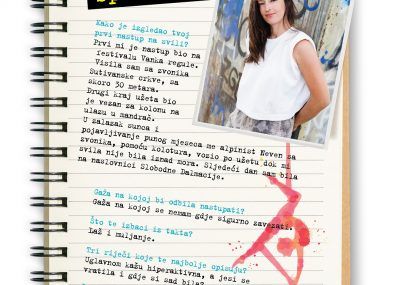 Kako je izgledao tvoj
prvi nastup na svili?
Prvi mi je nastup bio na
festivalu Vanka regule.
Visila sam sa zvonika
Sutivanske crkve, sa
skoro 30 metara.
Drugi kraj užeta bio
je vezan za kolonu na
ulazu u mandrač.
U zalazak sunca i
pojavljivanje punog mjeseca me alpinist Neven sa
zvonika, pomoću kolotura, vozio po užetu dok mi
svila nije bila iznad mora. Sljedeći dan sam bila
na naslovnici Slobodne Dalmacije.
Gaža na kojoj bi odbila nastupati?
Gaža na kojoj se nemam gdje sigurno zavezati.
Što te izbaci iz takta?
Laž i muljanje.
Tri riječi koje te najbolje opisuju?
Uglavnom kažu hiperaktivna, a jesi se
vratila i gdje si sad bila?